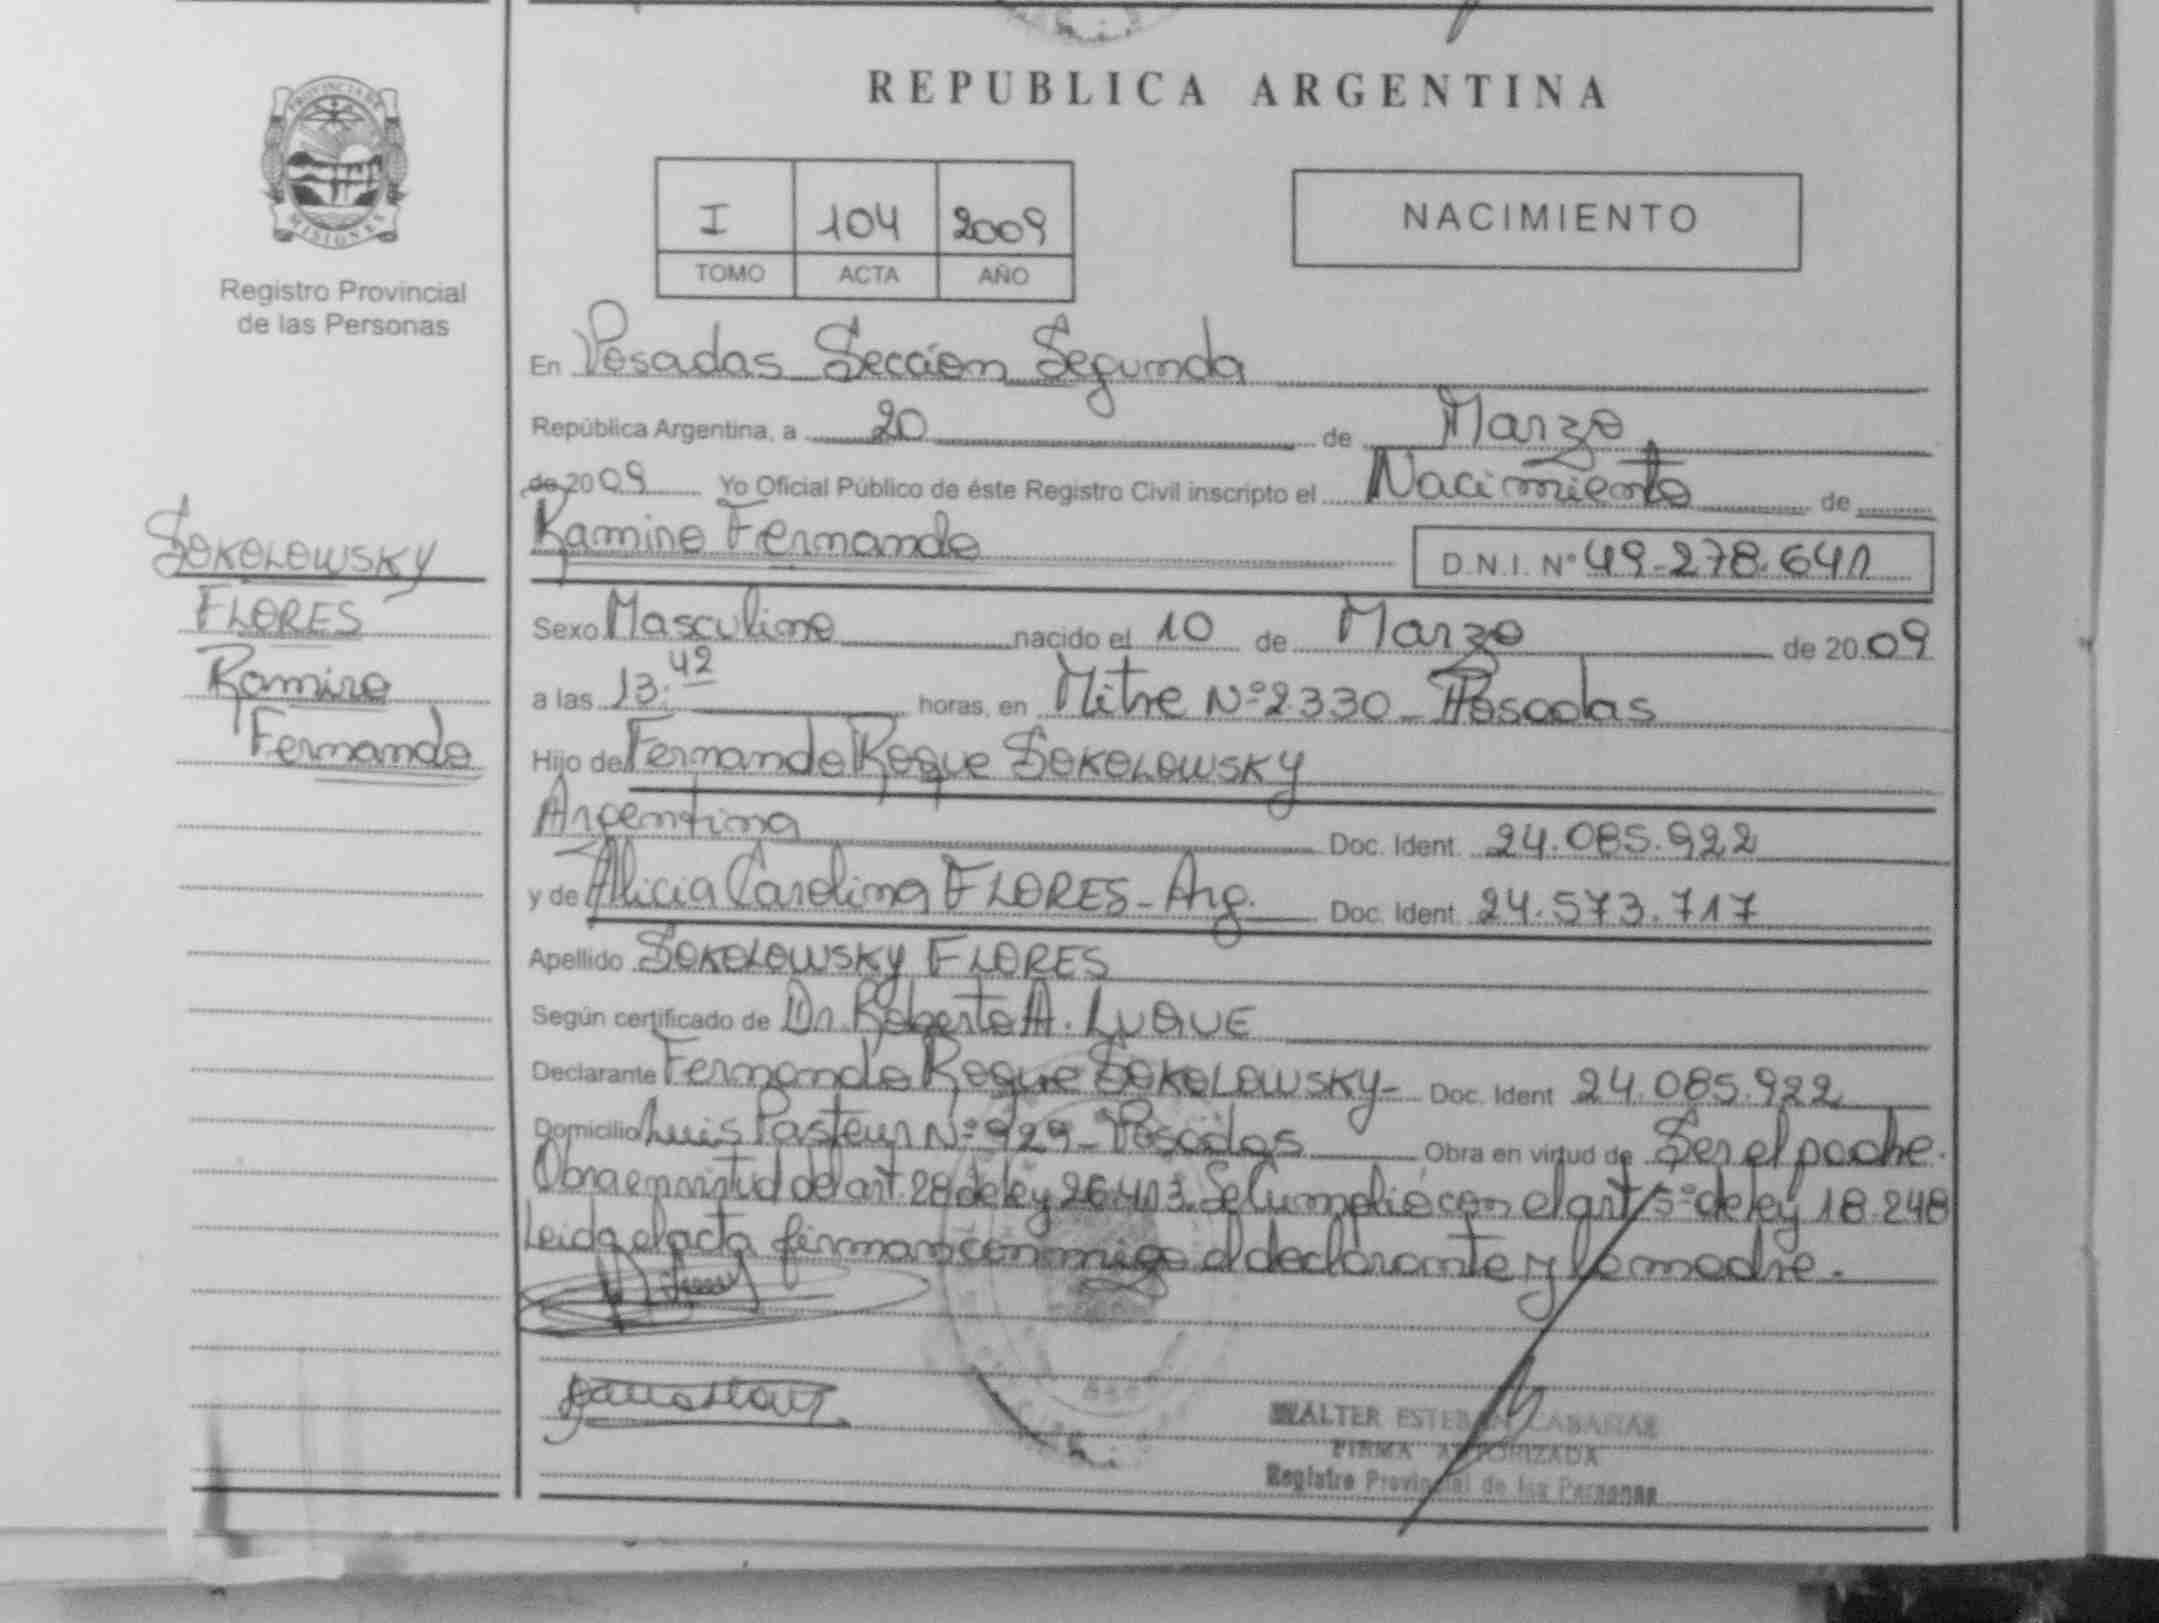 PROVINCIA DE
MISIONES
Registro Provincial
de las Personas
SOKOLOWSKY
FLORES
Ramiro
Fernando
REPUBLICA ARGENTINA
I 104 2009
TOMO ACTA AÑO
NACIMIENTO
En Posadas Sección Segunda
República Argentina, a 20 de Marzo
de 2009 Yo Oficial Público de éste Registro Civil inscripto el Nacimiento de
Ramiro Fernando D.N.I. Nº 49.278.641
Sexo Masculino nacido el 10 de Marzo de 2009
a las 13:42 horas, en Mitre Nº 2330 - Posadas
Hijo de Fernando Roque SOKOLOWSKY
Argentina Doc. Ident. 24.085.922
y de Alicia Carolina FLORES - Arg. Doc. Ident. 24.573.717
Apellido SOKOLOWSKY FLORES
Según certificado de Dr. Roberto A. LUQUE
Declarante Fernando Roque SOKOLOWSKY - Doc. Ident 24.085.922
Domicilio Luis Pasteur Nº 929 - Posadas Obra en virtud de Ser el padre.
Obra en virtud del art. 28 de ley 26.413. Se Cumplió con el art 5º de ley 18.248
Leida el acta firman conmigo el declarante y la madre.
WALTER ESTEBAN CABAÑAS
FIRMA AUTORIZADA
Registro Provincial de las Personas